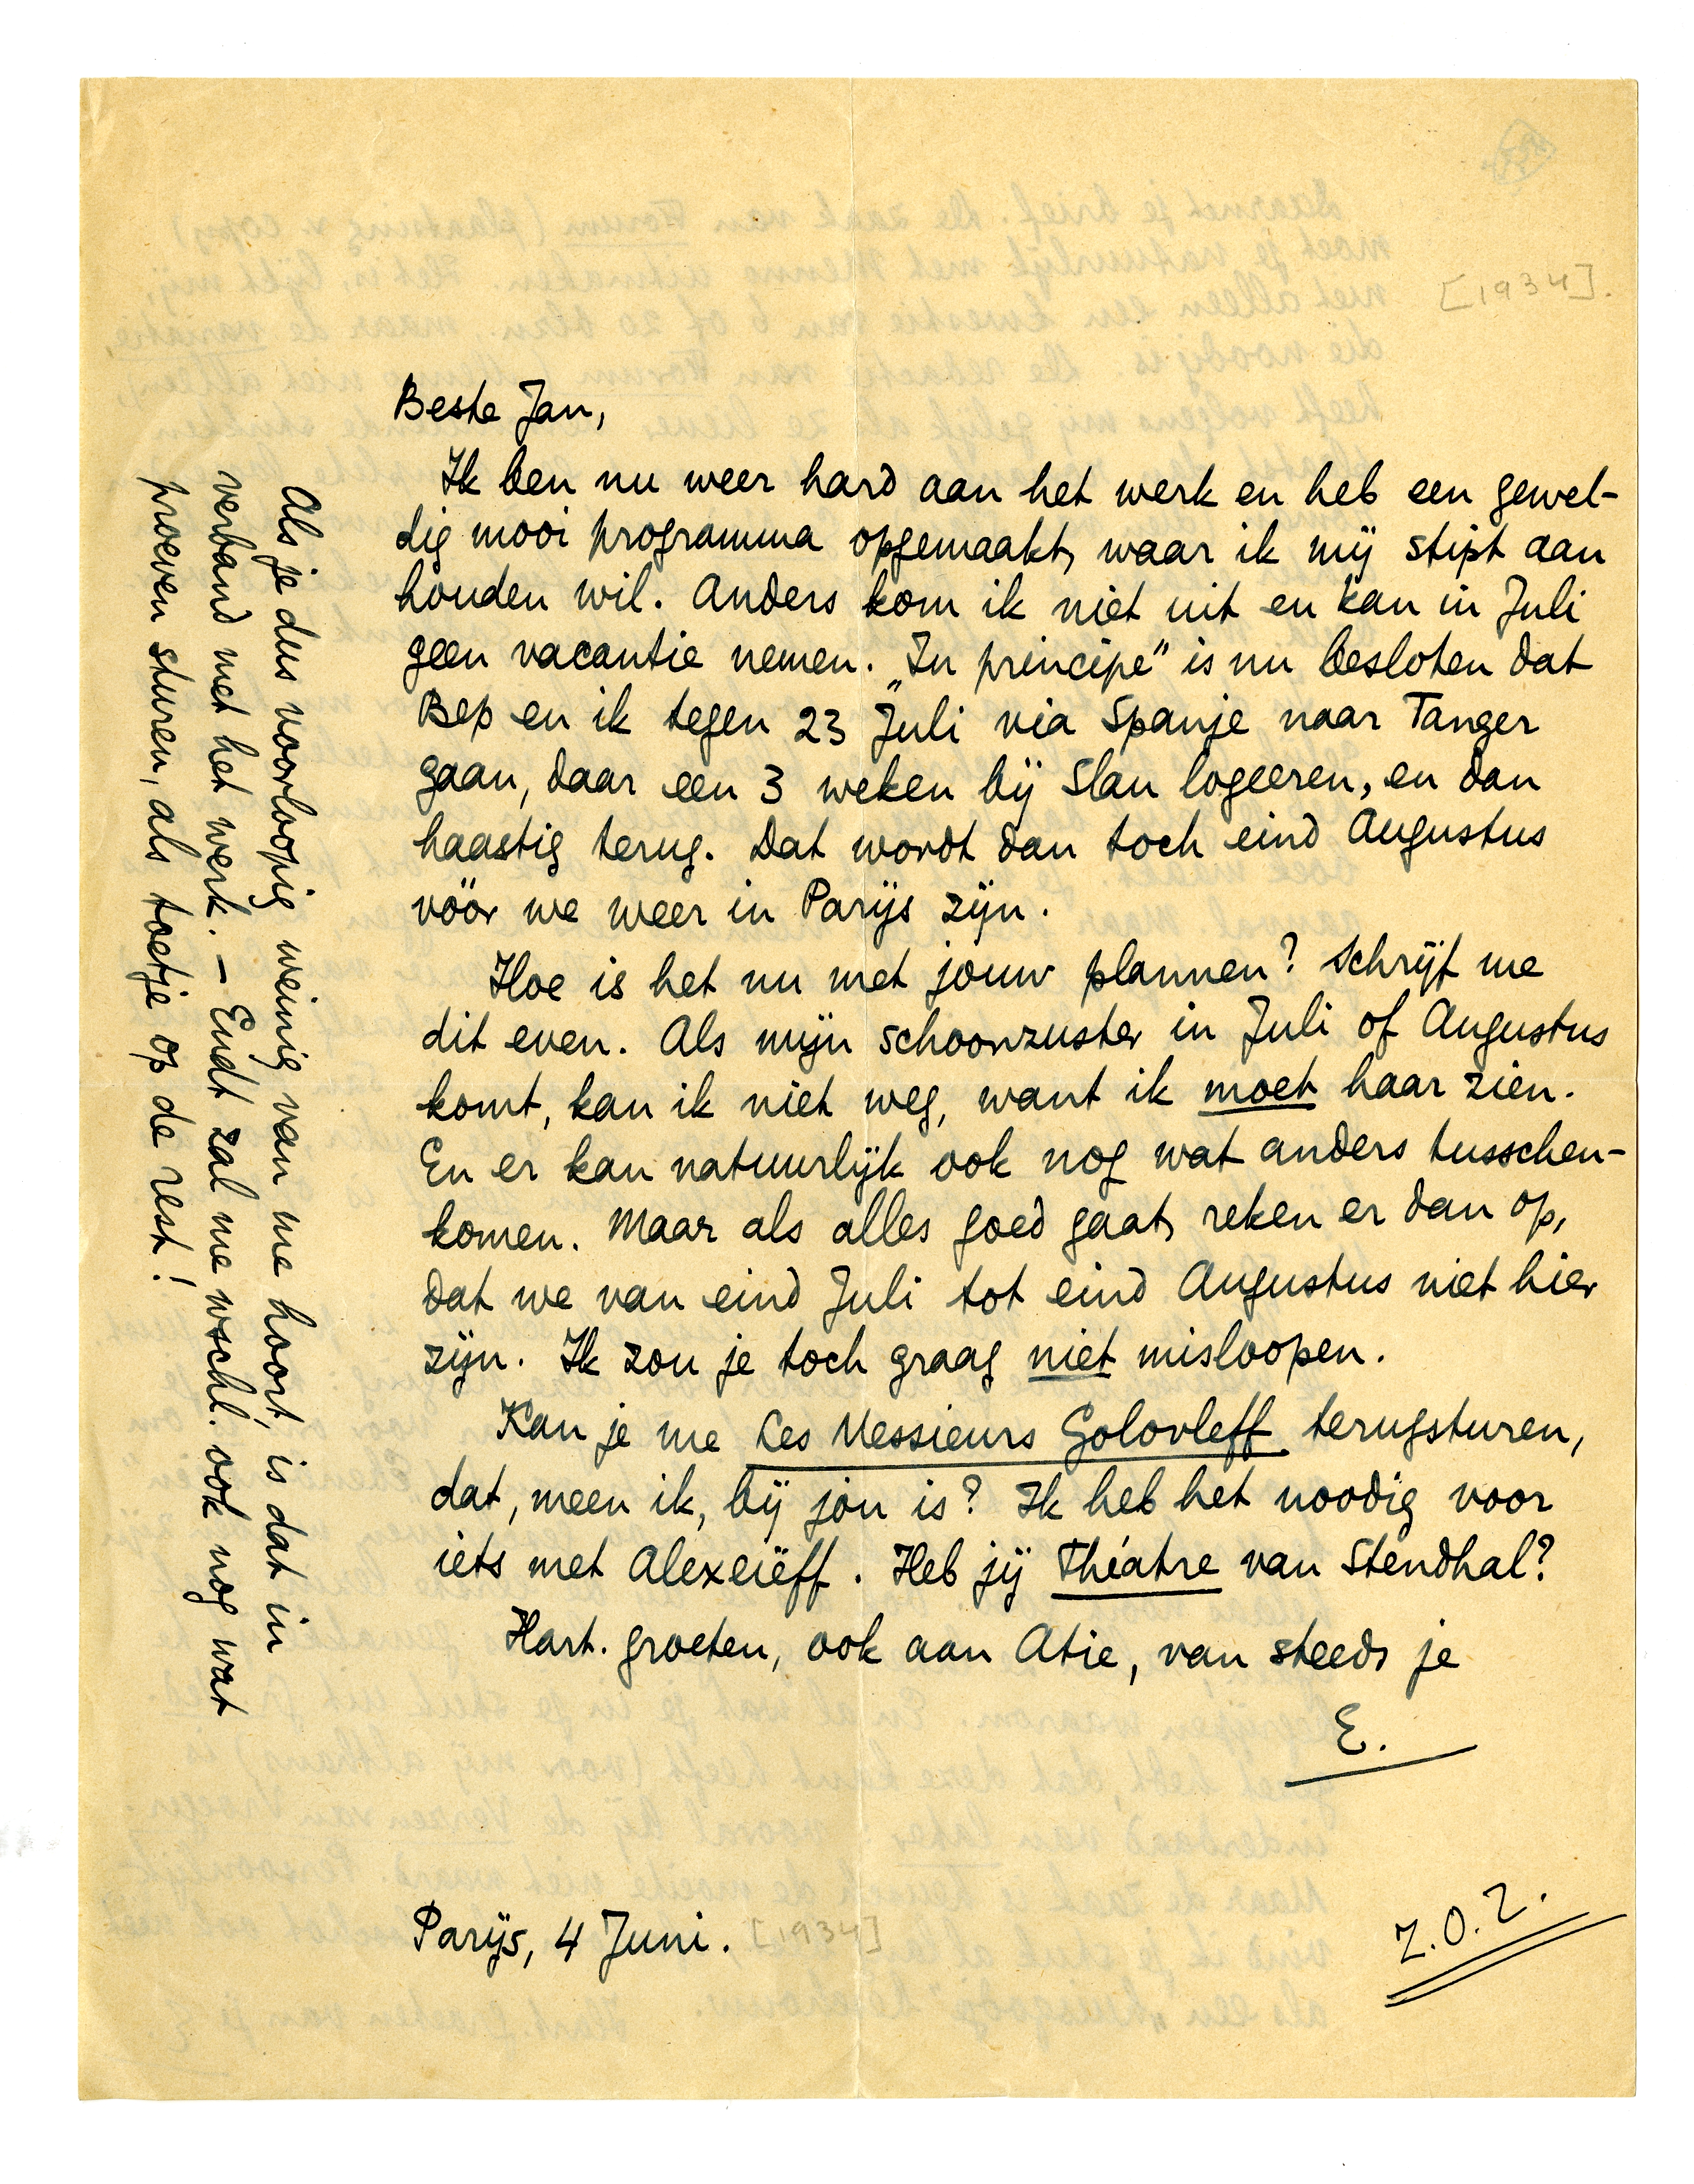 [1934].
Beste Jan,
Ik ben nu weer hard aan het werk en heb een gewel-
dig mooi programma opgemaakt, waar ik mij stipt aan
houden wil. Anders kom ik niet uit en kan in Juli
geen vacantie nemen. „In principe” is nu besloten dat
Bep en ik tegen 23 Juli via Spanje naar Tanger
gaan, daar een 3 weken bij Slau logeeren, en dan
haastig terug. Dat wordt dan toch eind Augustus
vóór we weer in Parijs zijn.
Hoe is het nu met jouw plannen? Schrijf me
dit even. Als mijn schoonzuster in Juli of Augustus
komt, kan ik niet weg, want ik moet haar zien.
En er kan natuurlijk ook nog wat anders tusschen-
komen. Maar als alles goed gaat, reken er dan op,
dat we van eind Juli tot eind Augustus niet hier
zijn. Ik zou je toch graag niet misloopen.
Kan je me Les Messieurs Golovleff terugsturen,
dat, meen ik, bij jou is? Ik heb het noodig voor
iets met Alexeïeff. Heb jij Théatre van Stendhal?
Hart. groeten, ook aan Atie, van steeds je
E.
Parijs, 4 Juni. [1934]
Z.O.Z.
Als je dus voorloopig weinig van me hoort, is dat in
verband met het werk. — Endt zal me wschl. ook nog wat
proeven sturen, als toetje op de rest!